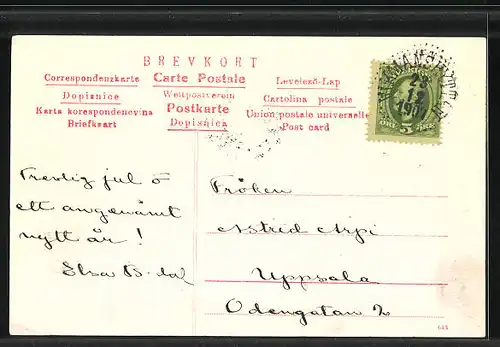 BREVKORT
Correspondenzkarte Carte Postale Levelező-Lap
Dopisnice Weltpostverein Cartolina postale
Karta korespondencyina Postkarte Union postale universelle
Briefkaart Dopisnica Post card
ÖRE 5 ÖRE
Trevlig jul o
ett angenämt
nytt år!
Elsa B-dal
Fröken
Astrid Arpi
Uppsala
Odengatan 2